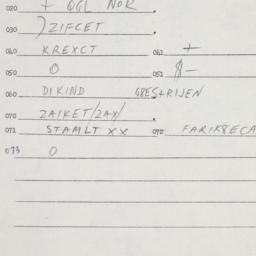 020 + QGL NOR .
030 ) ZIFCET .
040 KREXCT 041 +
050 0 051 $-
060 DIKIND GRESTRIJEN
070 ZAIKET/ZAX/ .
071 STAMLT XX 072 FARIKBECA
073 0